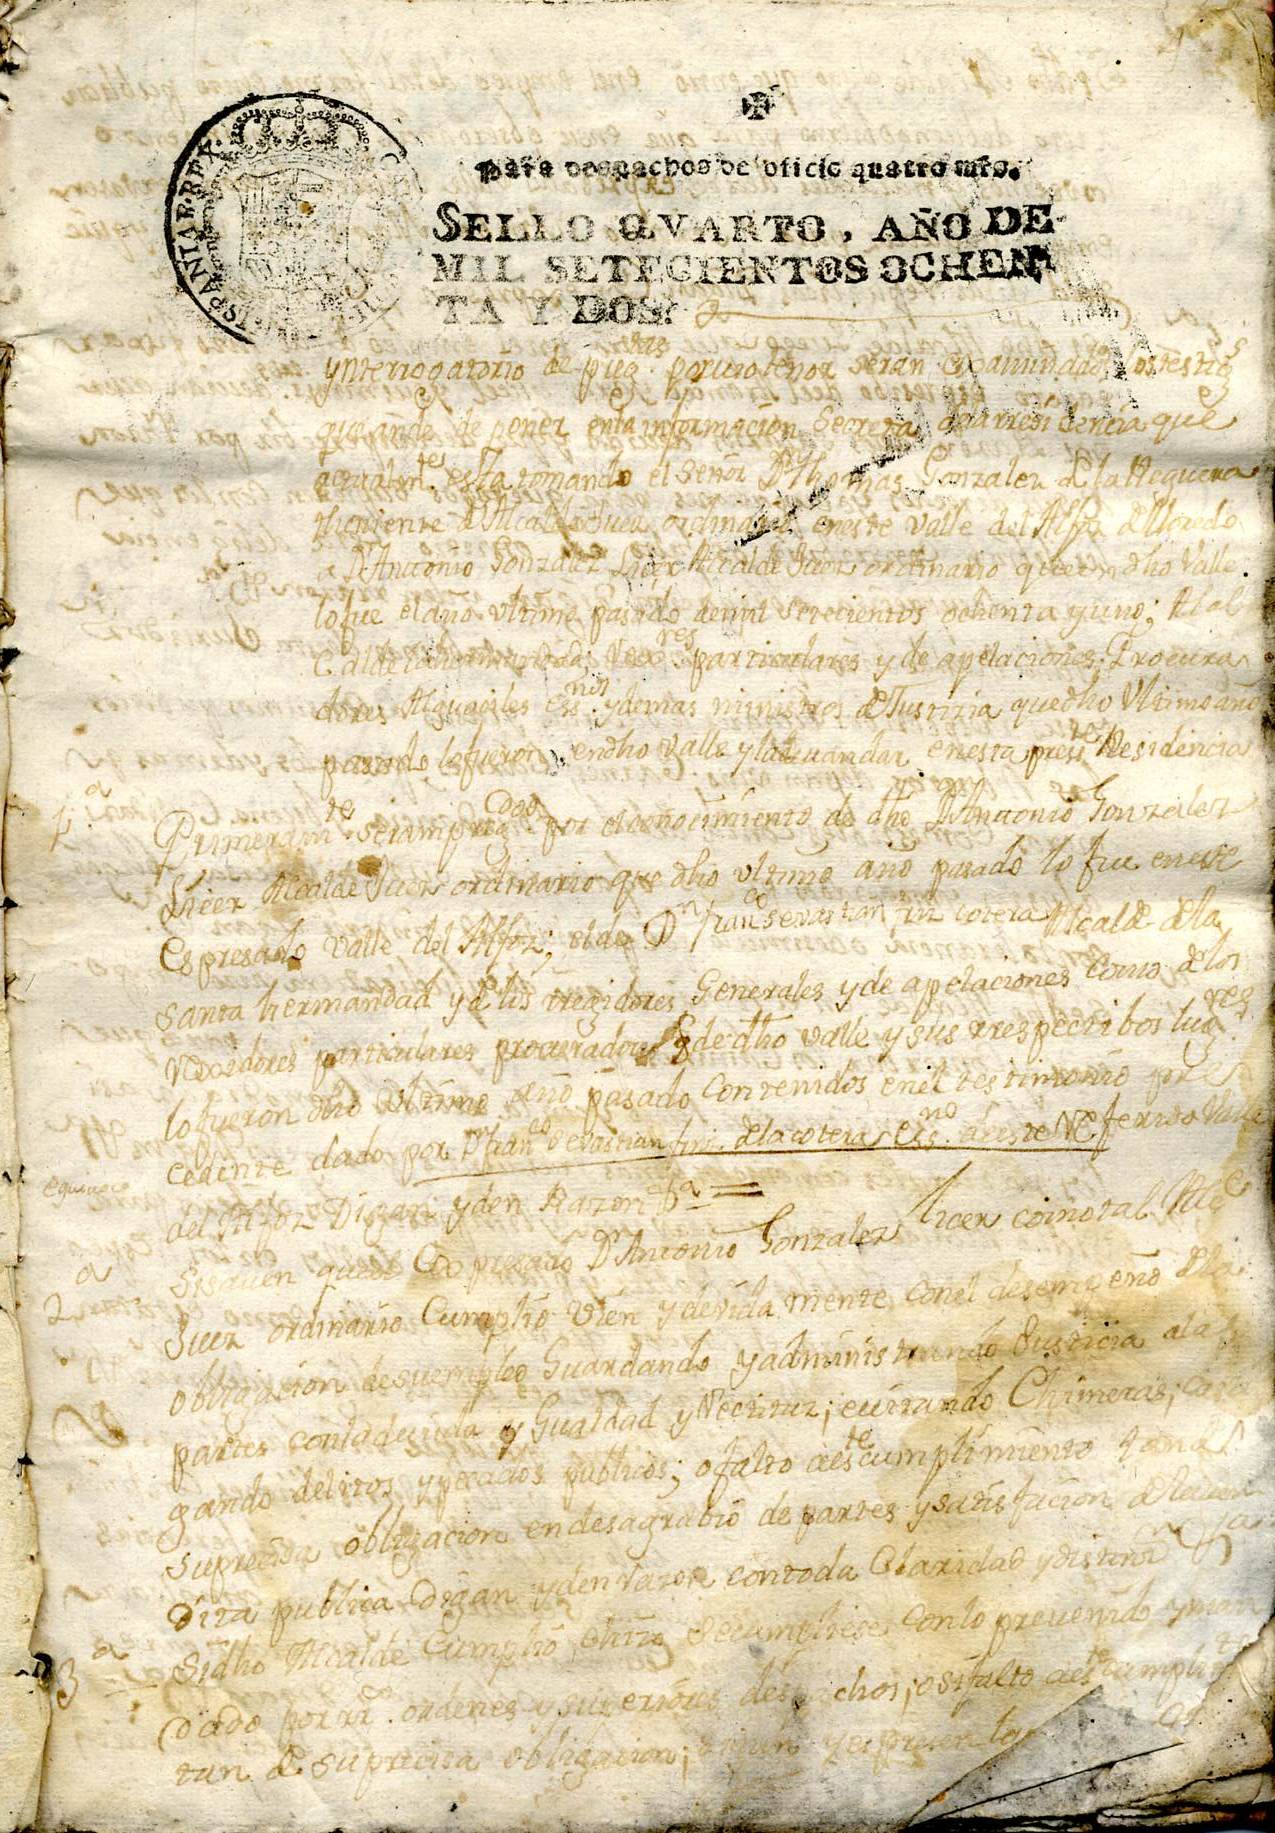 HISPANIAR·REX·
Para despachos de oficio quatro mrs.
SELLO QVARTO, AÑO DE
MIL SETECIENTOS OCHEN,
TA Y DOS.
ynterrogatorio de preg.tas por cuio tenor seran examinados los testig.s
que ande de poner en la informacion Secreta de la rresidencia que
actualm.te esta tomando el señor Dn Thomas Gonzalez de la Reguera
theniente de Alcalde Juez ordinario en este valle del Alfoz de Lloredo
a Dn Antonio Gonzalez Lizer Alcalde Juez ordinario que en dho Valle
lo fue el año vltimo pasado de mil setecientos ochenta y uno; Al al
calde de la hermandad; Rex.res particulares y de apelaciones; Procura
dores Alguaciles Ess.nos y demas ministros de Justizia que dho Vltimo año
pasado lo fueron en dho valle y la guardar en esta pres.te Residencia
1.a
Primeram.te seran preg.dos por el conocimiento de dho Dn Antonio Gonzalez
Lizer Alcalde Juez ordinario que dho vltimo año pasado lo fue en este
espresado valle del Alfoz; el de Dn Fran.co Sevastian frz cotera Alcalde de la
santa hermandad y de los rregidores Generales y de apelaciones como de los
Rexidores particulares procuradores de dho valle y sus rrespectibos lug.res
lo fueron dho vltimo año pasado contenidos en el testimonio pre
cedente dado por Dn Fran.co Sevastian frnz de la cotera Ess.no de este Referido Valle
del Alfoz Digan y den Razon &.a =
2.a
Si saven que el espresado Dn Antonio Gonzalez Lizer como tal Alc.e
Juez ordinario Cumplio vien y devida mente con el desempeño de la
obligacion de su empleo Guardando y administrando Justicia a las
partes con la devida ygualdad y Rectitud; evitando Chimeras; casti
gando delitos y pecados publicos; o falto a este cumplimiento
su precisa obligacion en desagrabio de partes y satisfacion de la
dita publica Digan y den razon con toda Claridad y distin.on
3.a
Si dho Alcalde Cumplio, e hizo se cumpliese con lo prevenido y man
dado por rr.s ordenes y superiores despachos; o si falto a este cumplim.to
tan de su precisa obligacion; digan y espresen lo